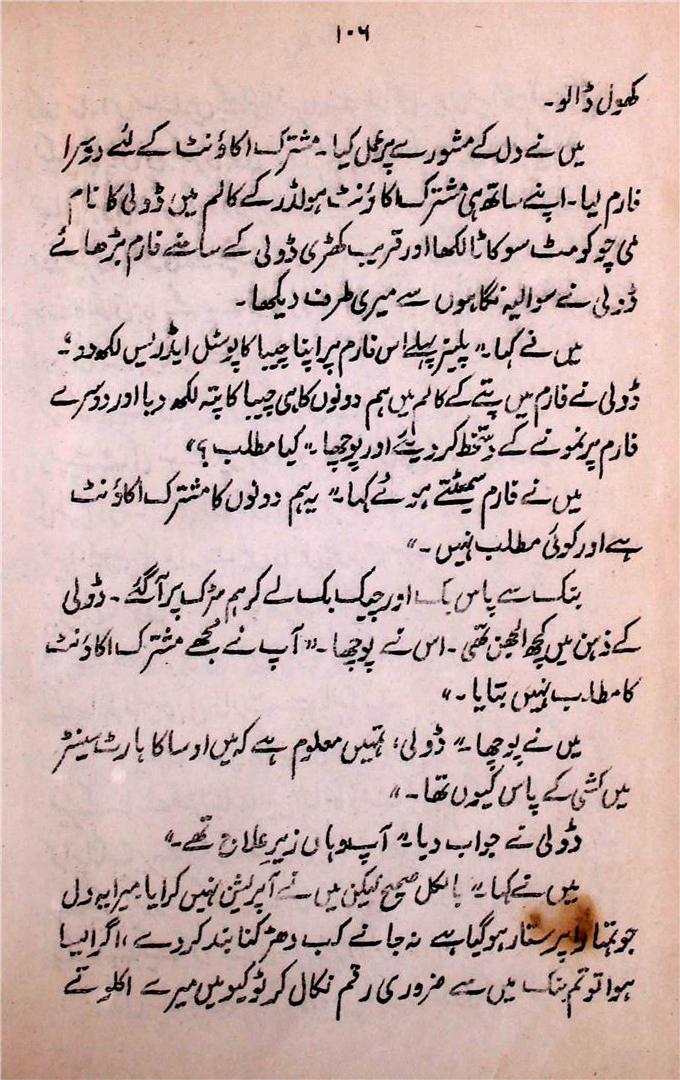 ۱۰۶
کھول ڈالو۔
میں نے دل کے مشورے پر عمل کیا۔ مشترک اکاؤنٹ کے لئے دوسرا
فارم لیا۔ اپنے ساتھ ہی مشترک اکاؤنٹ ہولڈر کے کالم میں ڈولی کا نام
می چو کو مٹ سو کاٹا لکھا اور قریب کھڑی ڈولی کے سامنے فارم بڑھائے
ڈولی نے سوالیہ نگاہوں سے میری طرف دیکھا۔
میں نے کہا۔" پلیز پہلے اس فارم پر اپنا چیبا کا پوسٹل ایڈریس لکھ دو؟۔
ڈولی نے فارم میں پتے کے کالم میں ہم دونوں کا ہی چیبا کا پتہ لکھ دیا اور دوسرے
فارم پر نمونے کے دستخط کر دیئے اور پوچھا۔" کیا مطلب؟"
میں نے فارم سمیٹتے ہوئے کہا۔" یہ ہم دونوں کا مشترک اکاؤنٹ
ہے اور کوئی مطلب نہیں۔"
بنک سے پاس بک اور چیک بک لے کر ہم سڑک پر آ گئے۔ ڈولی
کے ذہن میں کچھ الجھن تھی۔ اس نے پوچھا۔" آپ نے مجھے مشترک اکاؤنٹ
کا مطلب نہیں بتایا۔"
میں نے پوچھا۔" ڈولی، تمہیں معلوم ہے کہ میں اوساکا ہارٹ سینٹر
میں کشی کے پاس کیوں تھا۔"
ڈولی نے جواب دیا" آپ وہاں زیرِ علاج تھے۔"
میں نے کہا۔" بالکل صحیح لیکن میں نے آپریشن نہیں کرایا۔ میرا یہ دل
جو تمہارا پرستار ہو گیا ہے نہ جانے کب دھڑکنا بند کر دے، اگر ایسا
ہوا تو تم بنک میں سے ضروری رقم نکال کر ٹوکیو میں میرے اکلوتے